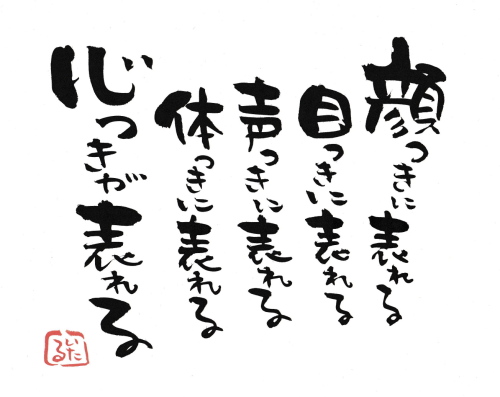 顔つきに表れる
目つきに表れる
声つきに表れる
体つきに表れる
心つきが表れる
いたる